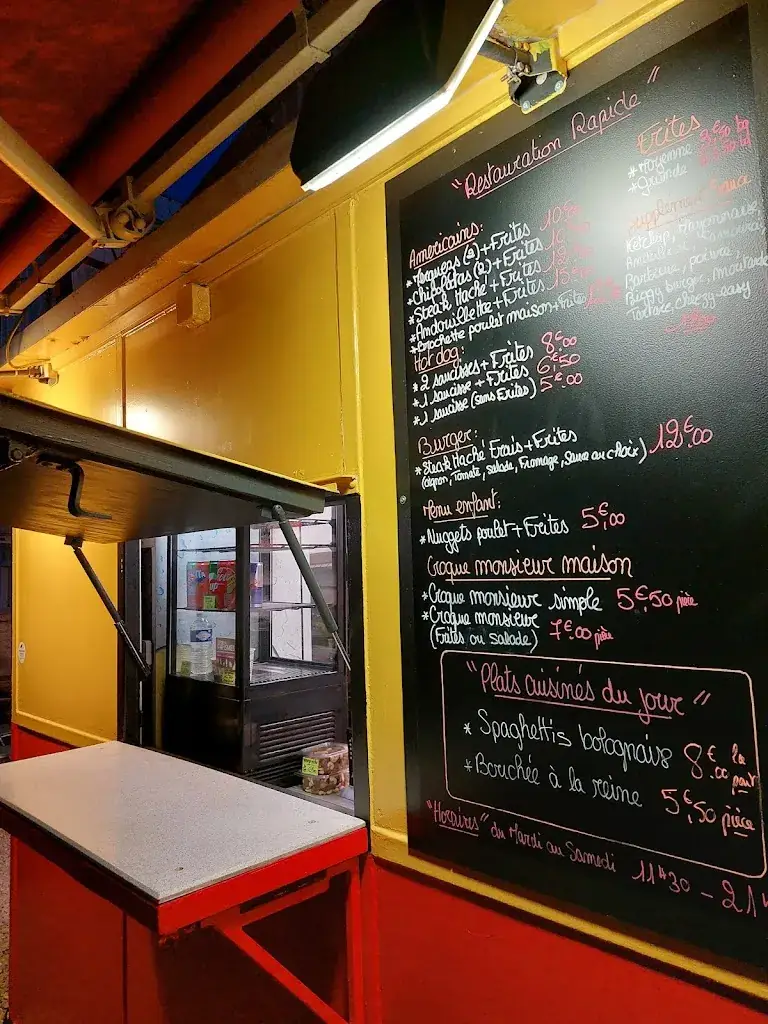 "Restauration Rapide"
Américains:
* Merguez (2) + Frites
* Chipolatas (2) + Frites
* Steak Haché + Frites
* Andouillette + Frites
* Brochette poulet maison + Frites
Hot dog:
* 2 saucisses + Frites 8€00
* 1 saucisse + Frites 6€50
* 1 saucisse (sans Frites) 5€00
Burger:
* Steak Haché Frais + Frites 12€00
(oignon, Tomate, salade, Fromage, Sauce au choix)
Menu enfant:
* Nuggets poulet + Frites 5€,00
Croque monsieur maison
* Croque monsieur simple 5€50 pièce
* Croque monsieur
(Frites ou salade) 7€00 pièce
"Plats cuisinés du jour"
* Spaghettis bolognaise 8€00 la part
* Bouchée à la reine 5€,50 pièce
"Horaires" du Mardi au Samedi 11H30 - 21H
Frites
* Moyenne
* Grande
Supplément Sauce
Ketchup, Mayonnaise,
Barbecue, poivre,
Biggy burger, Moutarde
Tartare, cheezy-easy